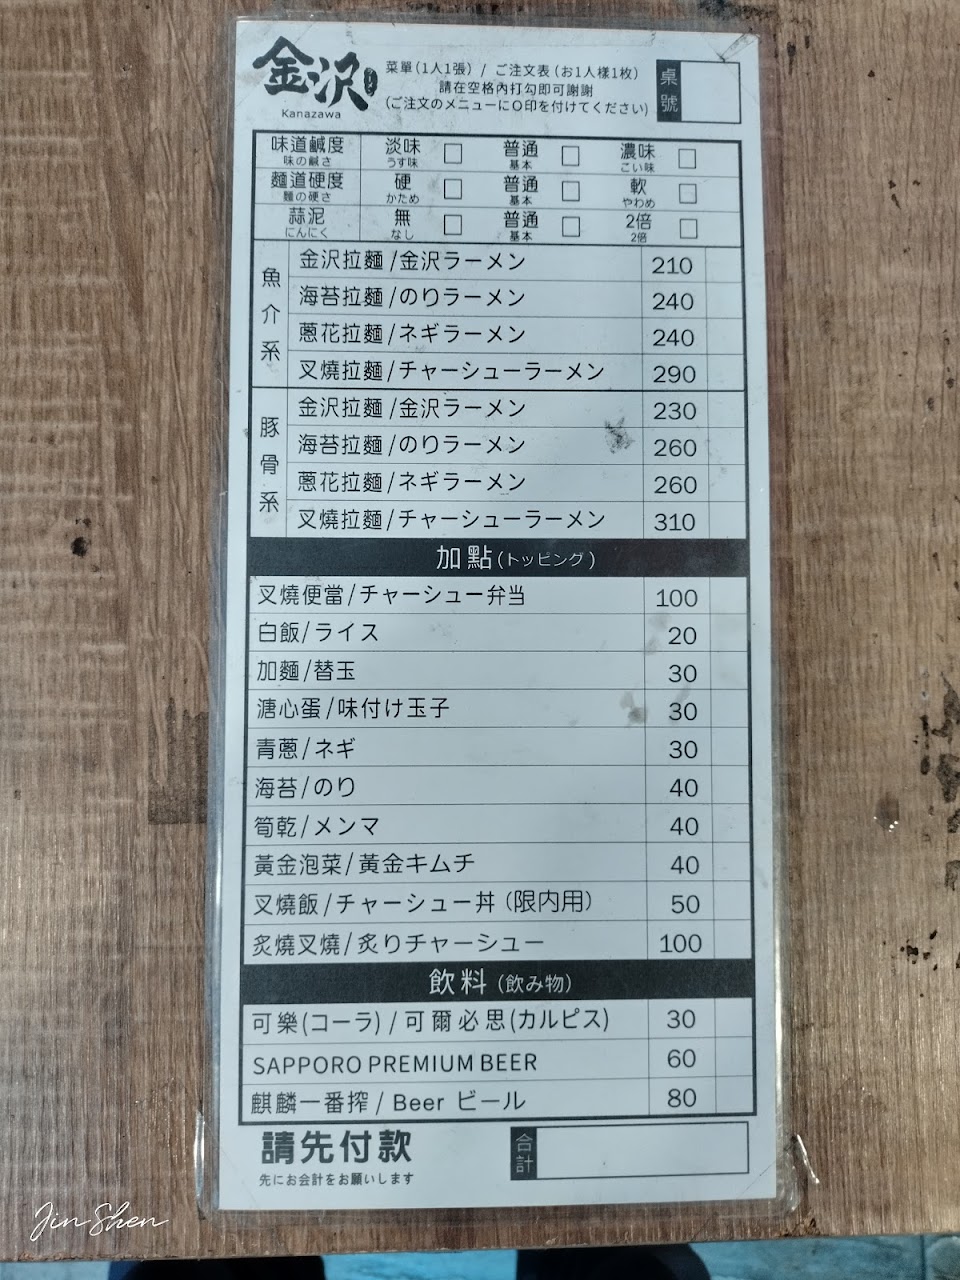 金沢
Kanazawa
菜單(1人1張) / ご注文表(お1人樣1枚)
請在空格內打勾即可謝謝
(ご注文のメニューにO印を付けてください)
桌號
味道鹹度 淡味 □ 普通 □ 濃味 □
味の鹹さ うす味 基本 こい味
麵道硬度 硬 □ 普通 □ 軟 □
麵の硬さ かため 基本 やわめ
蒜泥 無 □ 普通 □ 2倍 □
にんにく なし 基本 2倍
魚介系
金沢拉麵/金沢ラーメン 210
海苔拉麵/のりラーメン 240
蔥花拉麵/ネギラーメン 240
叉燒拉麵/チャーシューラーメン 290
豚骨系
金沢拉麵/金沢ラーメン 230
海苔拉麵/のりラーメン 260
蔥花拉麵/ネギラーメン 260
叉燒拉麵/チャーシューラーメン 310
加點(トッピング)
叉燒便當/チャーシュー弁当 100
白飯/ライス 20
加麵/替玉 30
溏心蛋/味付け玉子 30
青蔥/ネギ 30
海苔/のり 40
筍乾/メンマ 40
黃金泡菜/黃金キムチ 40
叉燒飯/チャーシュー丼(限內用) 50
炙燒叉燒/炙りチャーシュー 100
飲料(飲み物)
可樂(コーラ)/可爾必思(カルピス) 30
SAPPORO PREMIUM BEER 60
麒麟一番搾/Beer ビール 80
請先付款
先にお会計をお願いします
合計
Jin Shen